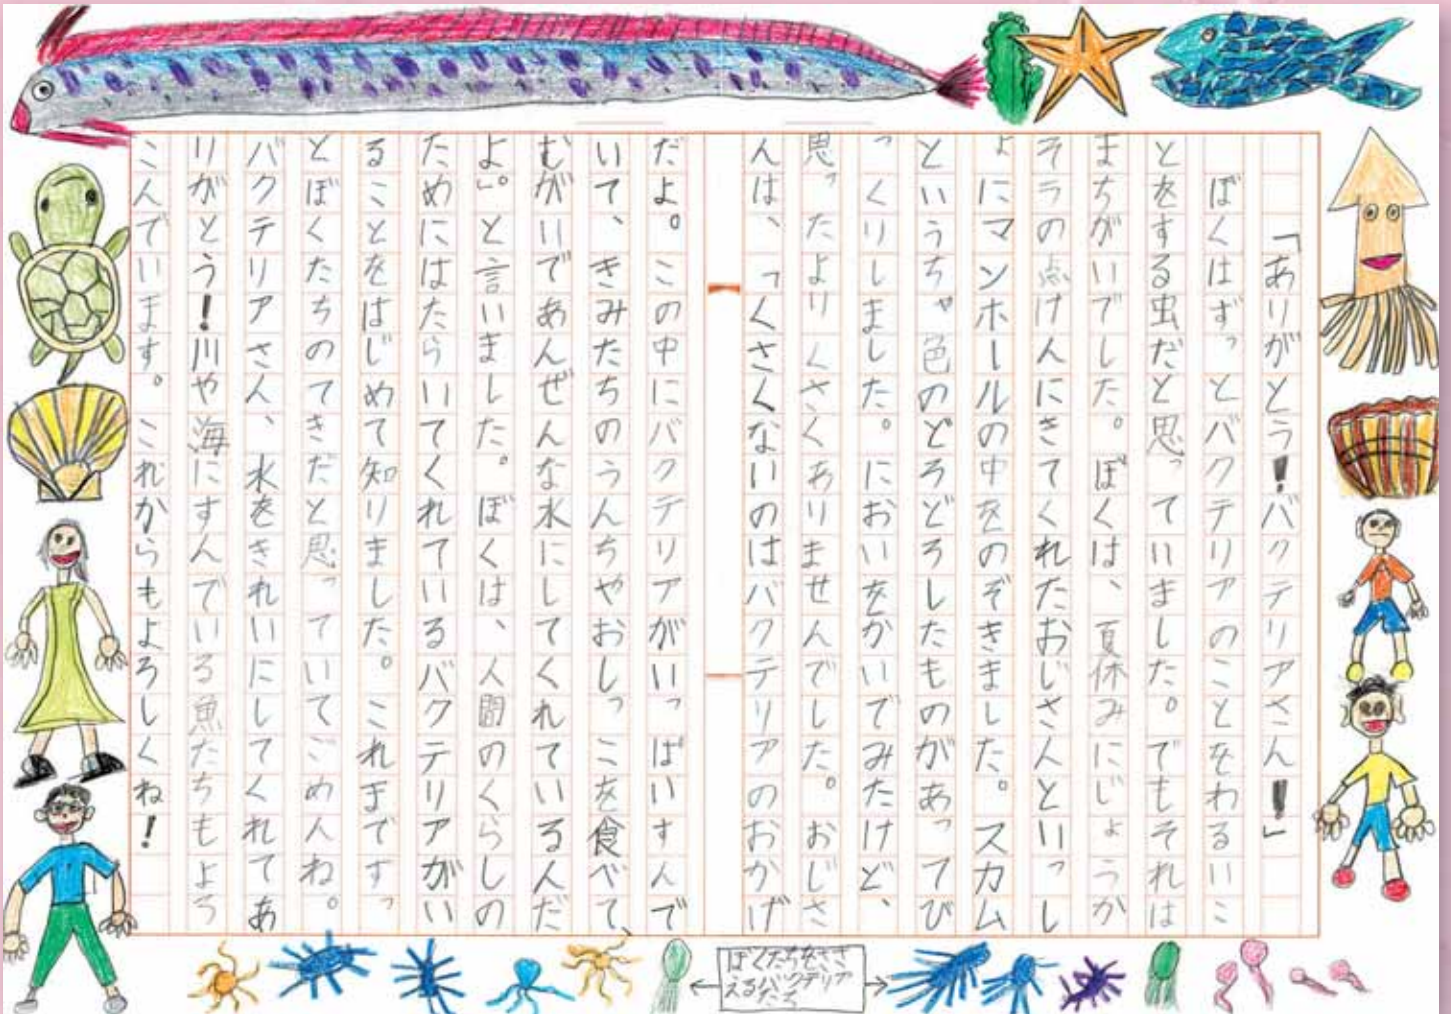 「ありがとう！バクテリアさん！」
ぼくはずっとバクテリアのことをわるいこ
とをする虫だと思っていました。でもそれは
まちがいでした。ぼくは、夏休みにじょうか
そうの点けんにきてくれたおじさんといっし
ょにマンホールの中をのぞきました。スカム
というちゃ色のどろどろしたものがあってび
っくりしました。においをかいでみたけど、
思ったよりくさくありませんでした。おじさ
んは、「くさくないのはバクテリアのおかげ
だよ。この中にバクテリアがいっぱいすんで
いて、きみたちのうんちやおしっこを食べて、
むがいであんぜんな水にしてくれているんだ
よ」。と言いました。ぼくは、人間のくらしの
ためにはたらいてくれているバクテリアがい
ることをはじめて知りました。これまでずっ
とぼくたちのてきだと思っていてごめんね。
バクテリアさん、水をきれいにしてくれてあ
りがとう！川や海にすんでいる魚たちもよろ
こんでいます。これからもよろしくね！
ぼくたちをささ
えるバクテリア
たち